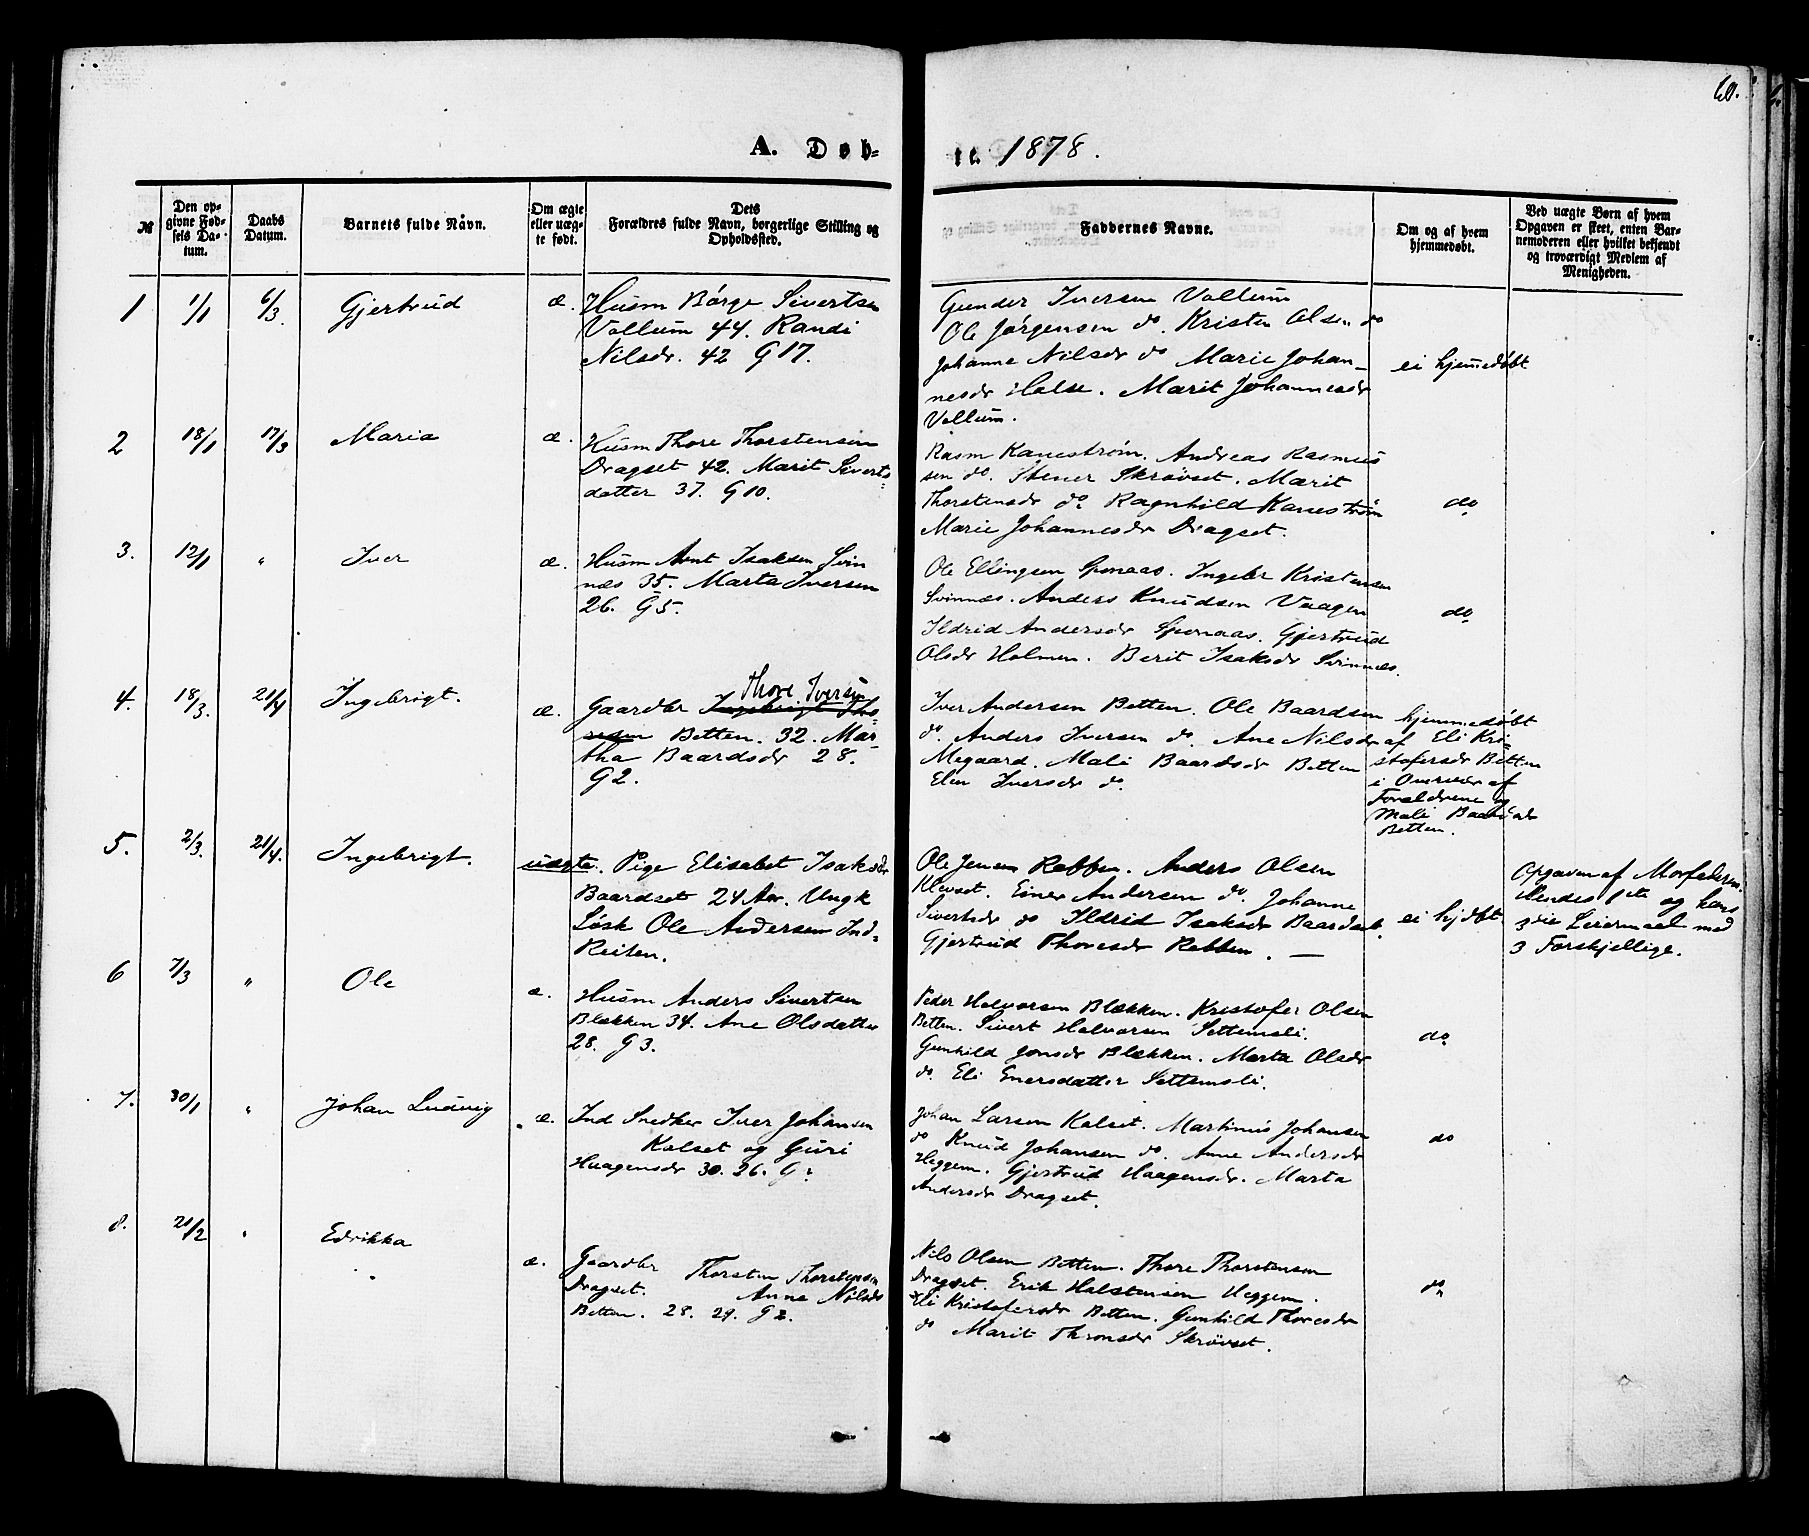 60.
A. Døb-
te. 1878.
№
Den op-
givne Fød-
sels Da-
tum.
Daabs
Datum.
Barnets fulde Navn.
Om ægte
eller uæg-
te født.
Dets
Forældres fulde Navn, borgerlige Stilling og
Opholdssted.
Faddernes Navne.
Om og af hvem
hjemmedøbt.
Ved uægte Børn af hvem
Opgaven er skeet, enten Bar-
nemoderen eller hvilket bekjendt
og troværdigt Medlem af
Menigheden.
1 1/1 6/3. Gjertrud æ.
Husm Børge Sivertsen
Vollum 44. Randi
Nilsdr. 42 G 17.
Gunder Iversen Vollum
Ole Jørgensen do. Kristen Olsen do
Johanne Nilsdr do Marie Johan-
nesdr Halse. Marit Johannesdr
Vollum.
ei hjemmedøbt
2 18/1 17/3 Maria æ.
Husm Thore Thorstensen
Dragset 42. Marit Siverts
datter 37. G 10.
Rasm Kanestrøm. Andreas Rasmus
sen do. Stener Skrøvset. Marit
Thorstensdr do. Ragnhild Kanestrøm
Marie Johannesdr Dragset.
do
3. 12/1 " Iver æ.
Husm Arnt Isaksen Svin
næs 35. Marta Iversen
26. G 5.
Ole Ellingsen Sponaas. Ingebr Kristensen
Svinnæs. Anders Knudsen Vaagen
Ildrid Andersdr Sponaas. Gjertrud
Olsdr Holmen. Berit Isaksdr Svinnæs.
do
4. 18/3. 21/4 Ingebrigt. æ.
Thore Iversen
Gaardbr Ingebrigt Tho-
resen Betten. 32. Mar-
tha Baardsdr 28.
G 2.
Iver Andersen Betten. Ole Baardsen
do. Anders Iversen do. Ane Nilsdr
Megaard. Mali Baardsdr Betten
Elen Iversdr do.
hjemmedøbt
af Eli Kri-
stofersdr Betten
i Overvær af
Forældrene og
Mali Baardsdr
Betten.
5. 2/3. 21/4. Ingebrigt. uægte.
Pige Elisabet Isaksdr
Baardset 24 Aar. Ungk
Løsk Ole Andersen Ind-
Reiten.
Ole Jensen Rabben. Anders Olsen
Klevset. Einer Andersen do. Johanne
Sivertsdr do Ildrid Isaksdr Baardset.
Gjertrud Thoresdr Rabben. —
ei hjdbt
Opgaven af Morfaderen.
Hendes 1ste og hans
3die Leiermaal med
3 Forskjellige.
6 7/3 " Ole æ.
Husm Anders Sivertsen
Blækken 34. Ane Olsdatter
28. G 3.
Peder Halvorsen Blækken. Kristofer Olsen
Betten. Sivert Halvorsen Settemsli.
Gunhild Jonsdr Blækken. Marta Olsdr
do. Eli Enersdatter Settemsli.
do
7. 30/1 " Johan Ludvig æ.
Ind Snedker Iver Johansen
Kalset og Guri
Haagensdr 30. 26. G:
Johan Larsen Kalset. Martinus Johansen
do Knud Johansen do. Anne Andersdr
Heggem. Gjertrud Haagensdr. Marta
Andersdr Dragset.
do
8. 21/2 " Edrikka æ.
Gaardbr Thorsten Thorstensen
Dragset. Anne Nilsdr
Betten. 28. 29. G 2.
Nils Olsen Betten. Thore Thorstensen
Dragset. Erik Halstensen Heggem.
Eli Kristofersdr Betten. Gunhild Thoresdr
do Marit Thronsdr Skrøvset.
do